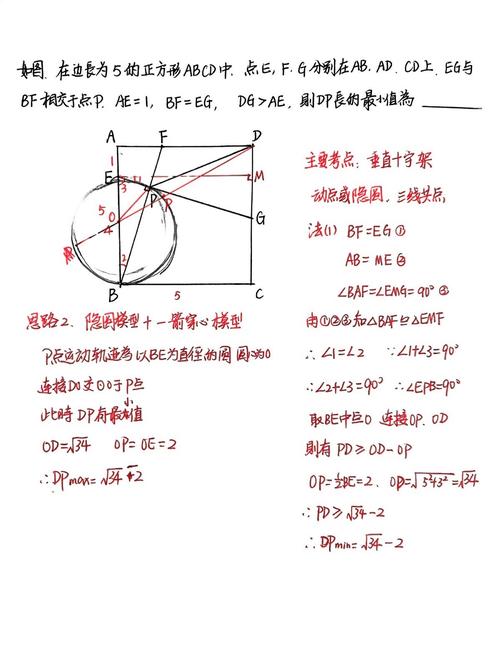 如图. 在边长为5的正方形ABCD中. 点E, F, G分别在AB. AD. CD上. EG与
BF相交于点P. AE=1, BF=EG, DG>AE, 则DP长的最小值為
A
F
D
1
E
3
1
M
P
P
5
O
4
G
2
B
5
C
主要考点: 垂直十字架
动点或隐圆, 三线共点,
法(1) BF=EG ①
AB=ME ②
∠BAF=∠EMG=90° ③
由①②③知△BAF≌△EMF
∴∠1=∠2 ∵∠1+∠3=90°
∴∠2+∠3=90° ∴∠EPB=90°
取BE中点O 连接OP. OD
则有 PD≥OD-OP
OP=½BE=2、OD=√5²+3²=√34
∴PD≥√34-2
∴DPmin=√34-2
思路2、隐圆模型+一箭穿心模型
P点运动轨迹為以BE为直径的圆 圆心为O
连接DO交⊙O于P点
此時DP有最小值
OD=√34 OP=OE=2
∴DPmax=√34-2